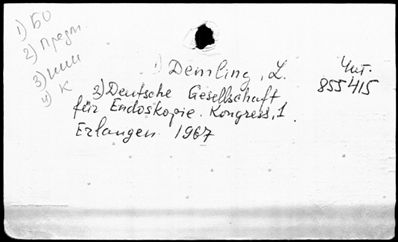 1) БО
2) Предм
3) ИМИ
4) К
1) Demling, L.
Чит.
855415
2) Deutsche Gesellschaft
für Endoskopie. Kongress, 1.
Erlangen 1967